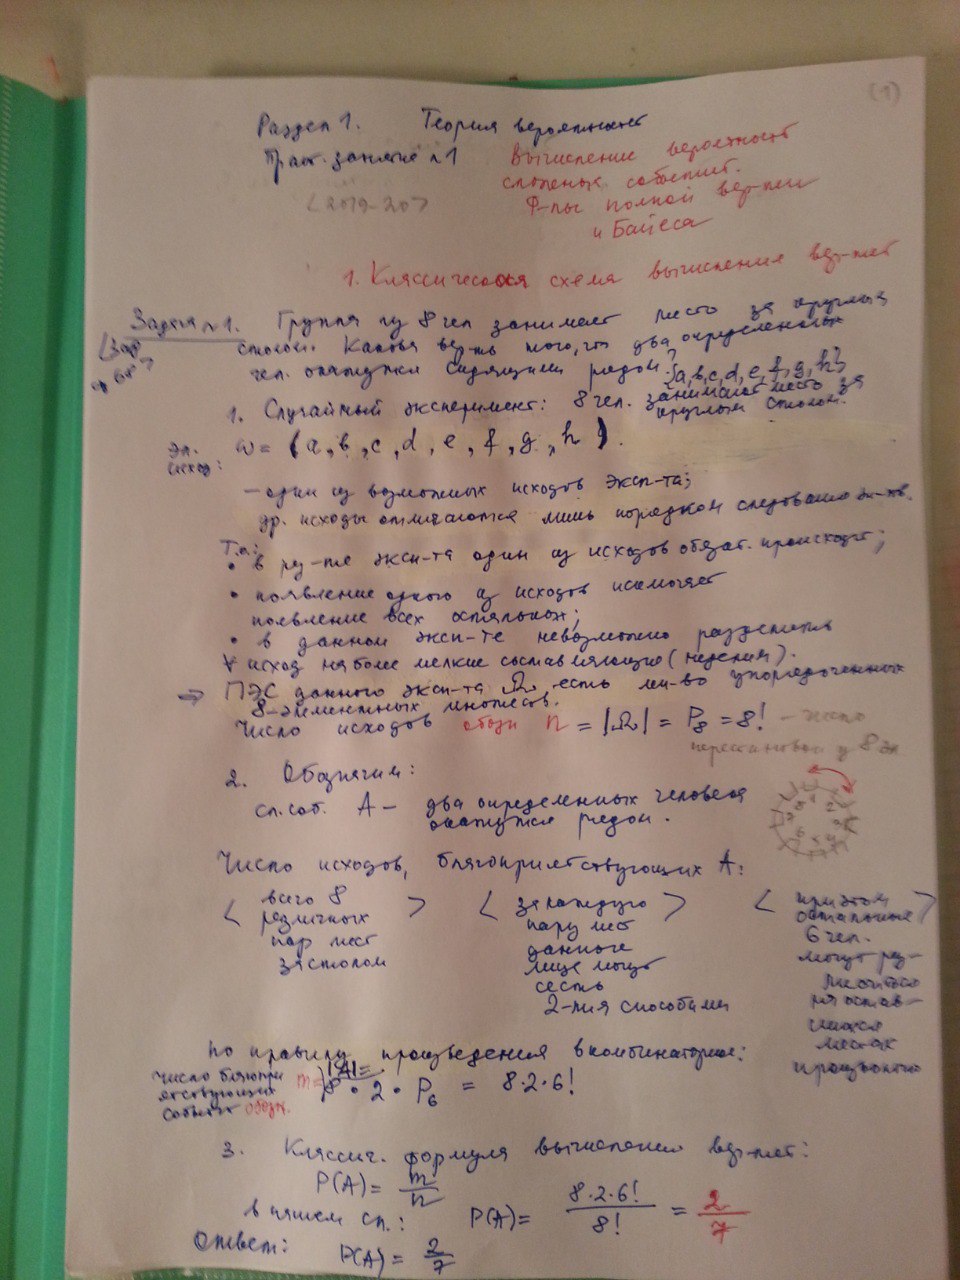 (1)
Раздел 1. Теория вероятностей
Практ. занятие №1 Вычисление вероятностей
сложных событий.
<2019-20> Ф-лы полной вер-ти
и Байеса
1. Классическая схема вычисления вер-тей
Задача №1. Группа из 8 чел занимает место за круглым
столом. Какова вер-ть того, что два определенных
чел. окажутся сидящими рядом? {a,b,c,d,e,f,g,h}
1. Случайный эксперимент: 8 чел. занимают место за
круглым столом.
эл. исход: ω = (a, b, c, d, e, f, g, h).
– один из возможных исходов эксп-та;
др. исходы отличаются лишь порядком следования эл-тов.
Т.о.:
• в рез-те эксп-та один из исходов обязат. происходит;
• появление одного из исходов исключает
появление всех остальных;
• в данном эксп-те невозможно разделить
∀ исход на более мелкие составляющие (неделим).
⇒ ПЭС данного эксп-та Ω есть мн-во упорядоченных
8-элементных множеств.
Число исходов обозн n = |Ω| = P₈ = 8! – число
перестановок из 8 эл.
2. Обозначим:
сл. соб. A – два определенных человека
окажутся рядом.
Число исходов, благоприятствующих A:
< всего 8 различных пар мест за столом >
< за каждую пару мест данные лица могут сесть 2-мя способами >
< при этом остальные 6 чел. могут раз-меститься на остав-шихся местах произвольно >
По правилу произведения в комбинаторике:
число благоприятствующих событий обозн. m = |A| =
8 · 2 · P₆ = 8·2·6!
3. Классич. формула вычисления вер-тей:
P(A) = m/n
в нашем сл.: P(A) = 8·2·6!/8! = 2/7
Ответ: P(A) = 2/7